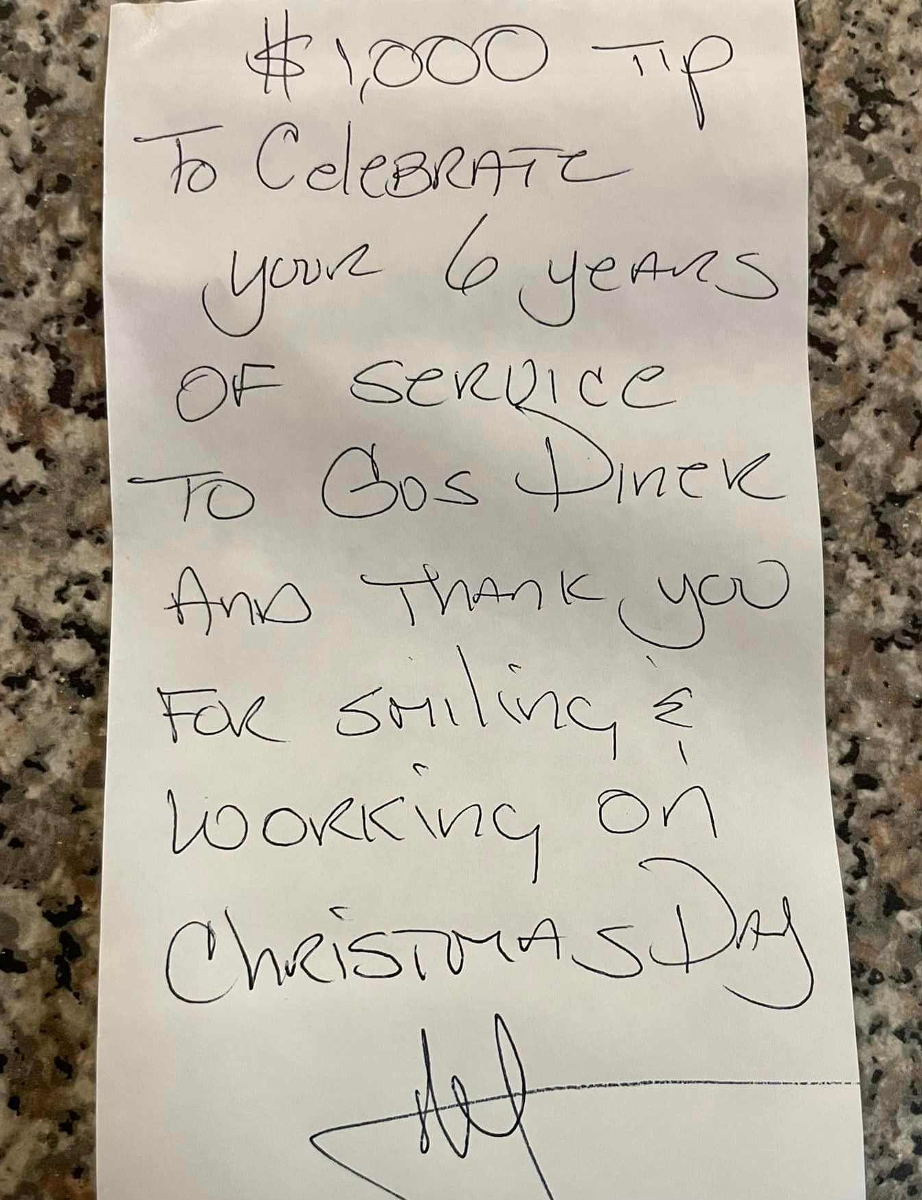 $1,000 Tip
To Celebrate
your 6 years
of service
to Gus Diner
And thank you
for smiling &
working on
Christmas Day